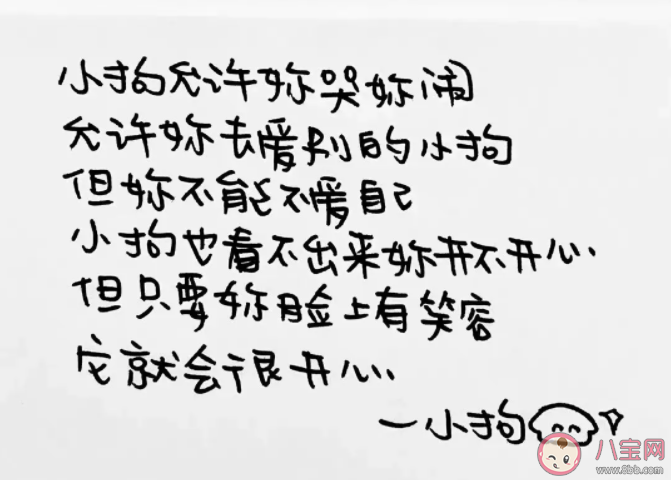 小狗允许妳哭妳闹
允许妳去爱别的小狗
但妳不能不爱自己
小狗也看不出来妳开不开心
但只要妳脸上有笑容
它就会很开心
一小狗
八宝网
www.8bb.com